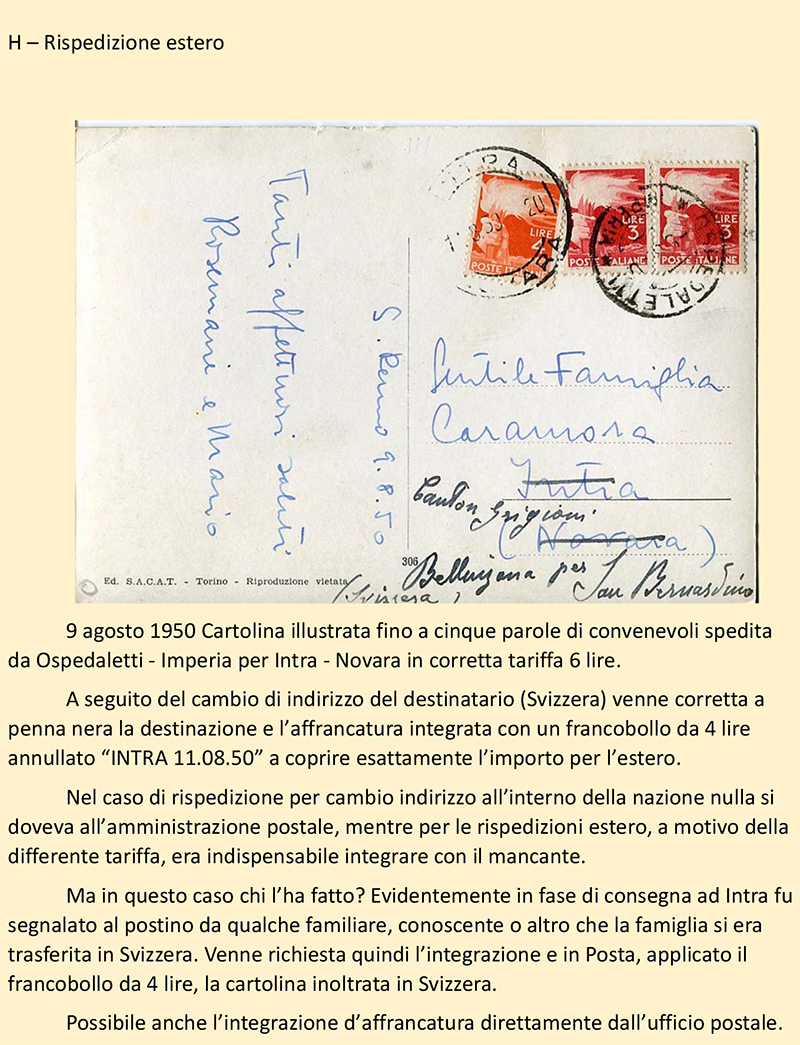 H – Rispedizione estero
INTRA
20
INTRA
LIRE
4
POSTE ITALIANE
LIRE
3
POSTE ITALIANE
LIRE
3
POSTE ITALIANE
OSPEDALETTI
IMPERIA
Tanti affettuosi saluti
Rosemarie e Mario
S. Remo 9.8.50
Gentile Famiglia
Caramora
Intra
Canton Grigioni
(Novara)
306
Bellinzona per San Bernardino
(Svizzera)
Ed. S.A.C.A.T. - Torino - Riproduzione vietata
9 agosto 1950 Cartolina illustrata fino a cinque parole di convenevoli spedita
da Ospedaletti - Imperia per Intra - Novara in corretta tariffa 6 lire.
A seguito del cambio di indirizzo del destinatario (Svizzera) venne corretta a
penna nera la destinazione e l’affrancatura integrata con un francobollo da 4 lire
annullato “INTRA 11.08.50” a coprire esattamente l’importo per l’estero.
Nel caso di rispedizione per cambio indirizzo all’interno della nazione nulla si
doveva all’amministrazione postale, mentre per le rispedizioni estero, a motivo della
differente tariffa, era indispensabile integrare con il mancante.
Ma in questo caso chi l’ha fatto? Evidentemente in fase di consegna ad Intra fu
segnalato al postino da qualche familiare, conoscente o altro che la famiglia si era
trasferita in Svizzera. Venne richiesta quindi l’integrazione e in Posta, applicato il
francobollo da 4 lire, la cartolina inoltrata in Svizzera.
Possibile anche l’integrazione d’affrancatura direttamente dall’ufficio postale.